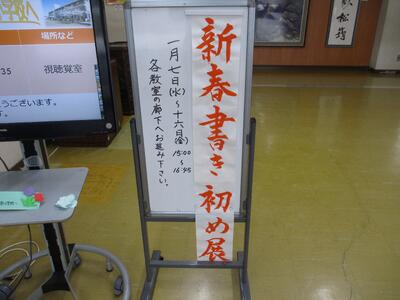 新春書き初め展
一月七日(水)～十六日(金)
15:00～16:45
各教室の廊下へお進み下さい。
場所など
35
視聴覚室
うございます。
す。